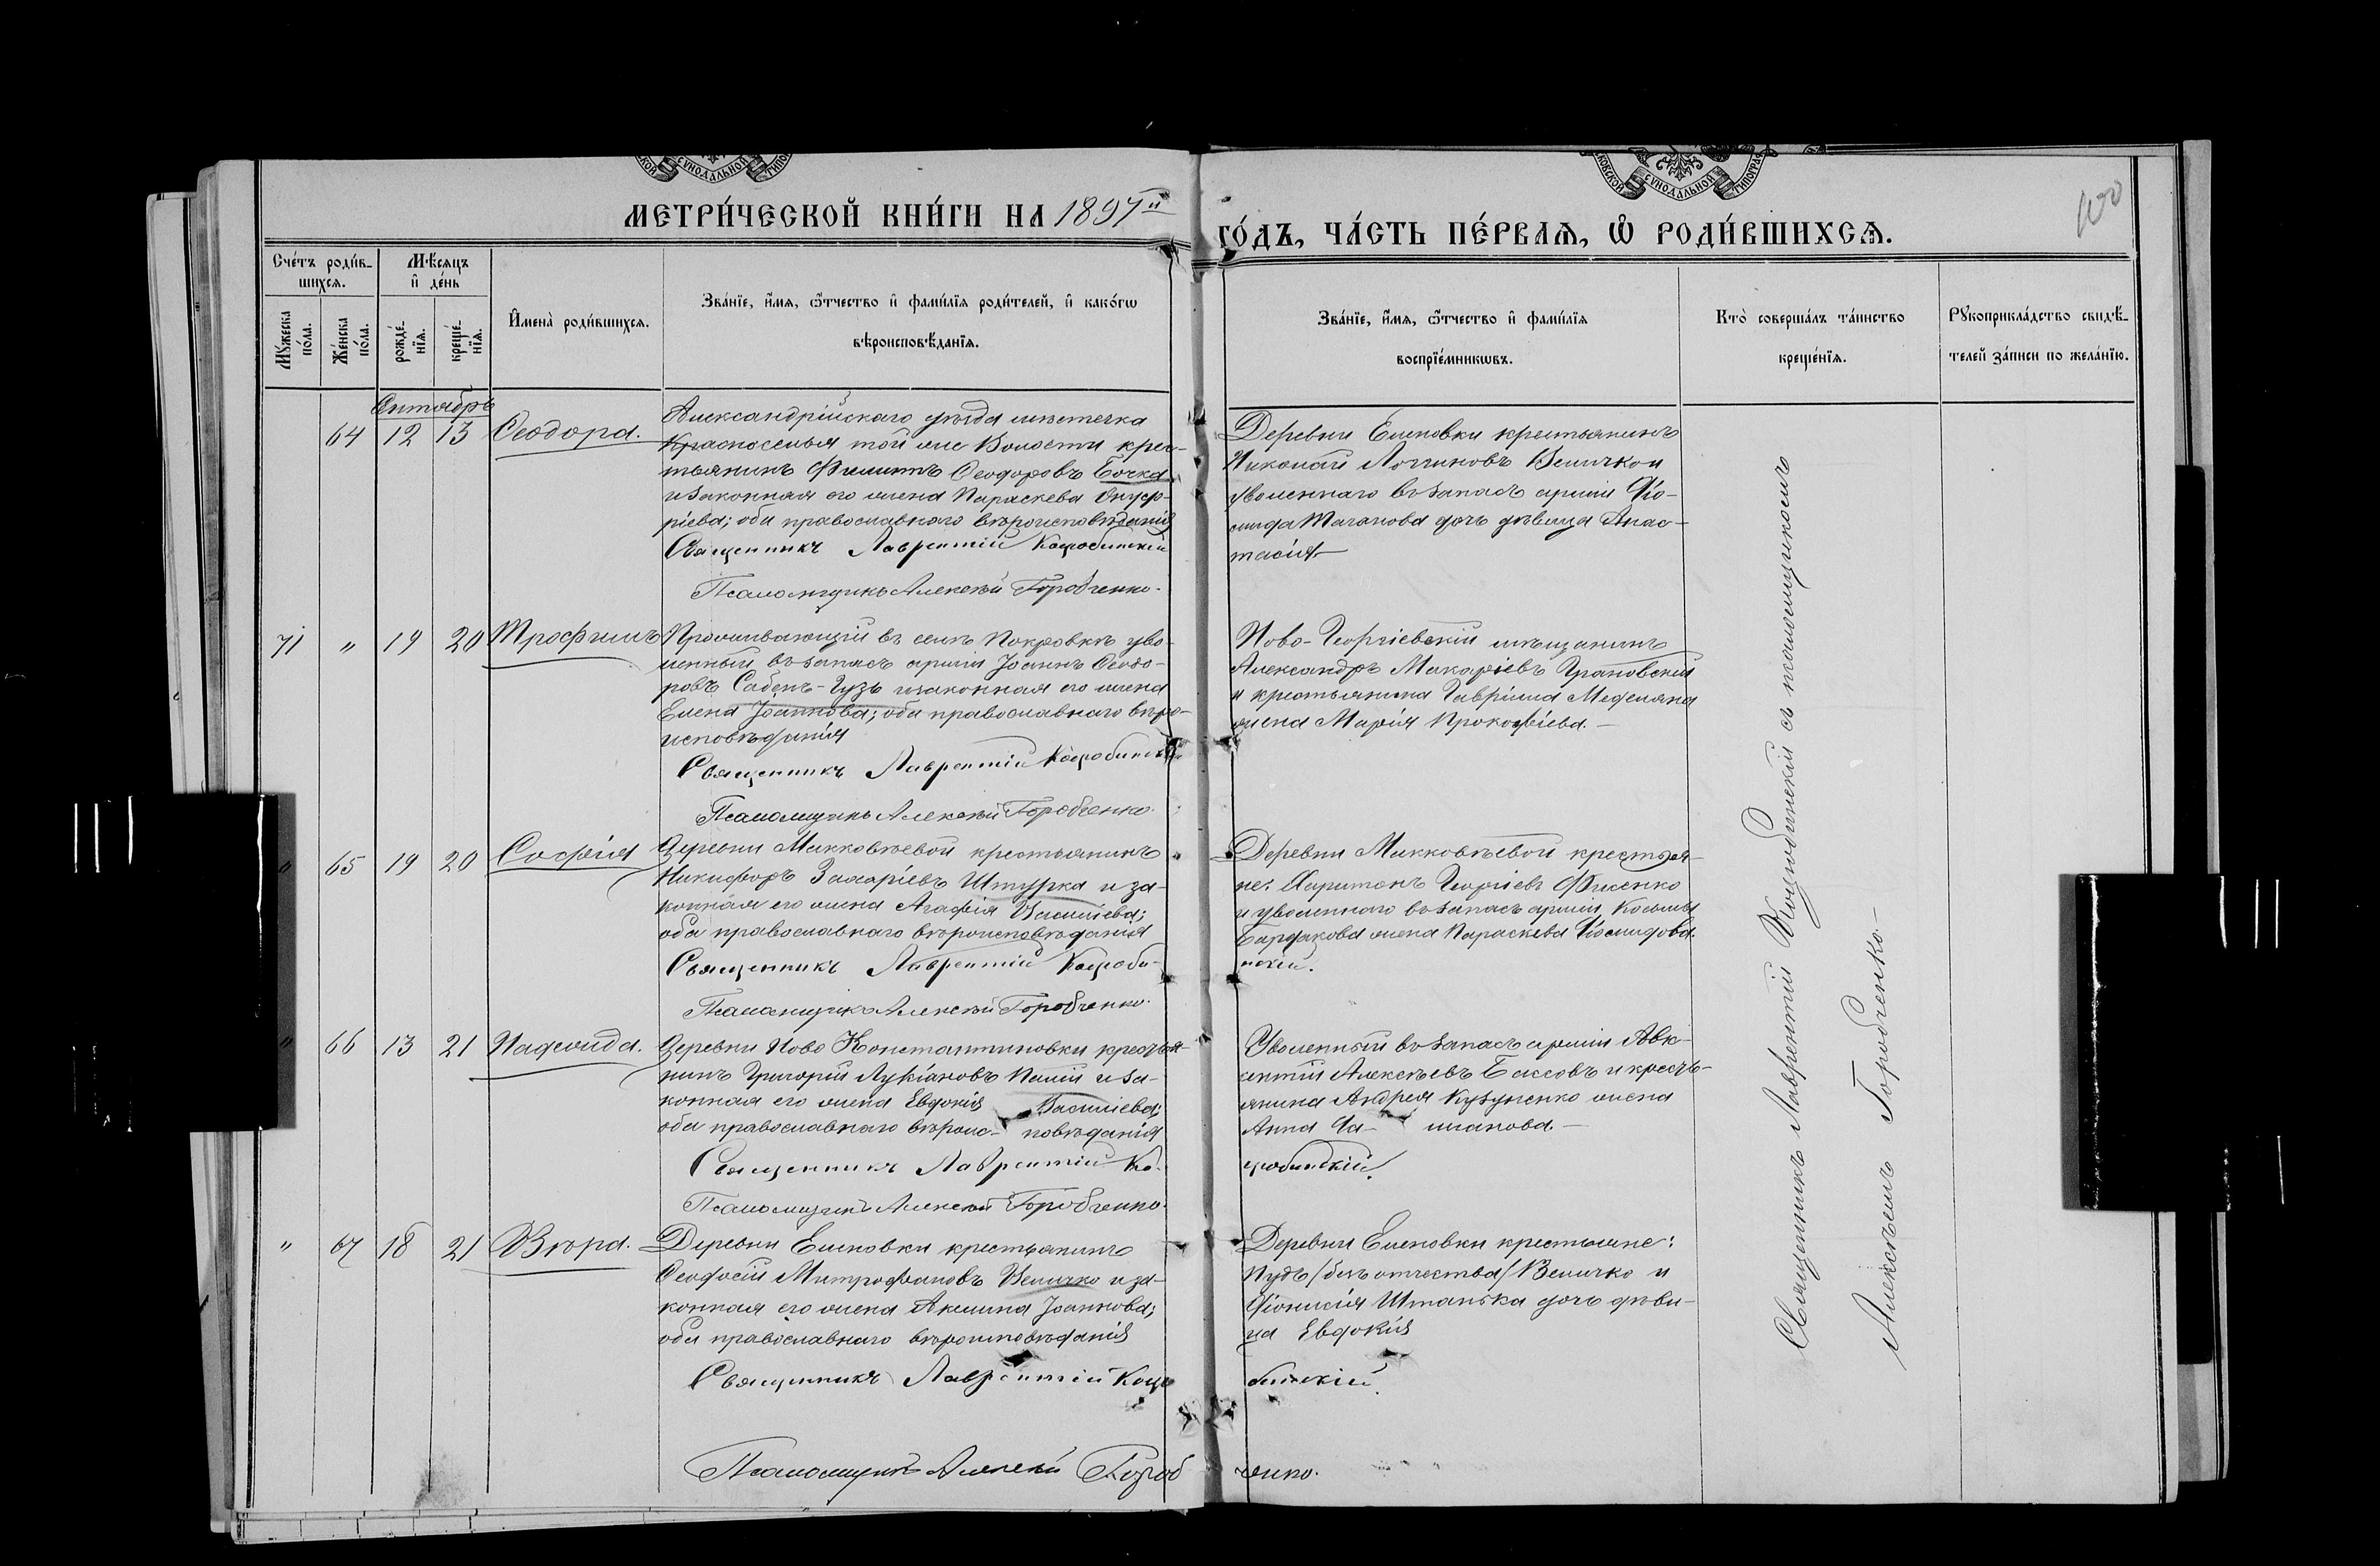 МЕТРИ́ЧЕСКОЙ КНИ́ГИ НА 1897й
ГО́ДЪ, ЧА́СТЬ ПЕ́РВАѦ, Ѡ РОДИ́ВШИХСѦ.
100
Сче́тъ роди́в-
шихся.
Мѣ́сяцъ
и де́нь
Му́жеска по́ла.
Же́нска по́ла.
рожде́-нїя.
креще́-нїя.
Имена̀ роди́вшихся.
Зва́нїе, и́мя, ѻ́тчество и фами́лїя роди́телей, и како́гѡ
вѣроисповѣ́данїя.
Зва́нїе, и́мя, ѻ́тчество и фами́лїя
воспрїе́мникѡвъ.
Кто̀ соверша́лъ та́инство
креще́нїя.
Рꙋкоприкла́дство свидѣ́-
телей за́писи по жела́нїю.
Октябрь
64 12 13 Ѳеодора.
Александрійскаго уѣзда мѣстечка
Красноселья той же Волости крес-
тьянинъ Филиппъ Ѳеодоровъ Бочка
и законная его жена Параскева Онуф-
ріева; оба православнаго вѣроисповѣданія
Священникъ Лаврентій Коцюбинскій
Псаломщикъ Алексѣй Горобченко.
Деревни Еленовки крестьянинъ
Николай Логгиновъ Величко и
уволеннаго въ запасъ арміи Діо-
мида Таганова дочь дѣвица Анас-
тасія
71 " 19 20 Трофимъ
Проживающій въ селѣ Покровкѣ уво-
ленный въ запасъ арміи Іоаннъ Ѳеодо-
ровъ Сабенъ-Гузь и законная его жена
Елена Іоаннова; оба православнаго вѣро-
исповѣданія
Священникъ Лаврентій Коцюбинскій
Псаломщикъ Алексѣй Горобченко.
Ново-Георгіевскій мѣщанинъ
Александръ Макаріевъ Грановскій
и крестьянина Гавріила Меделяна
жена Марія Прокофіева.
" 65 19 20 Софія
Деревни Макковѣевой крестьянинъ
Никифоръ Захаріевъ Штурка и за-
конная его жена Агафія Василіева;
оба православнаго вѣроисповѣданія
Священникъ Лаврентій Коцюби-
Псаломщикъ Алексѣй Горобченко.
Деревни Макковѣевой крестья-
не: Харитонъ Георгіевъ Фисенко
и уволеннаго въ запасъ арміи Косьмы
Бардакова жена Параскева Діомидова.
нскій.
" 66 13 21 Надежда.
Деревни Ново Константиновки крестья-
нинъ Григорій Лукіановъ Палій и за-
конная его жена Евдокія Василіева;
оба православнаго вѣроис- повѣданія
Священникъ Лаврентій Ко-
Псаломщикъ Алексѣй Горобченко.
Уволенный въ запасъ арміи Авк-
сентій Алексѣевъ Бассовъ и кресть-
янина Андрея Кузуненко жена
Анна
цюбинскій.
" 67 18 21 Вѣра.
Деревни Еленовки крестьянинъ
Ѳеодосій Митрофановъ Величко и за-
конная его жена Акилина Іоаннова;
оба православнаго вѣроисповѣданія
Священникъ Лаврентій Коцю
Псаломщикъ Алексѣй Гороб
Деревни Еленовки крестьяне:
Іудъ /безъ отчества/ Величко и
Діонисія Штанька дочь дѣви-
ца Евдокія
бинскій.
ченко.
Священникъ Лаврентій Коцюбинскій съ псаломщикомъ
Алексѣемъ Горобченко.